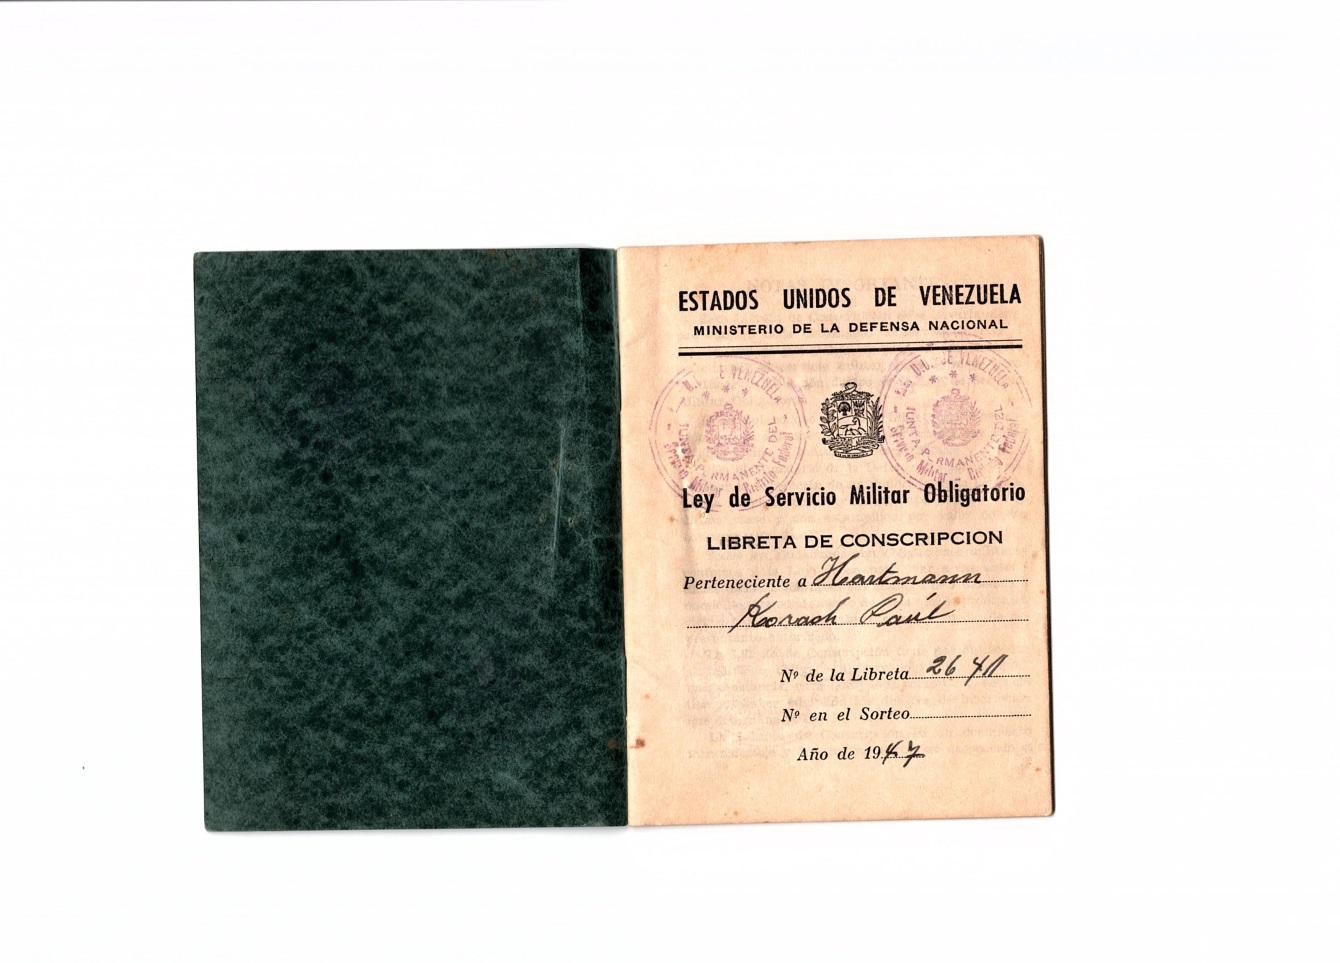 ESTADOS UNIDOS DE VENEZUELA
MINISTERIO DE LA DEFENSA NACIONAL
E.E. U.U. DE VENEZUELA
JUNTA PERMANENTE DEL
Servicio Militar Distrito Federal
E.E. U.U. DE VENEZUELA
JUNTA PERMANENTE DEL
Servicio Militar Distrito Federal
Ley de Servicio Militar Obligatorio
LIBRETA DE CONSCRIPCION
Perteneciente a Hartmann
Korach Paúl
Nº de la Libreta 26411
Nº en el Sorteo
Año de 1947